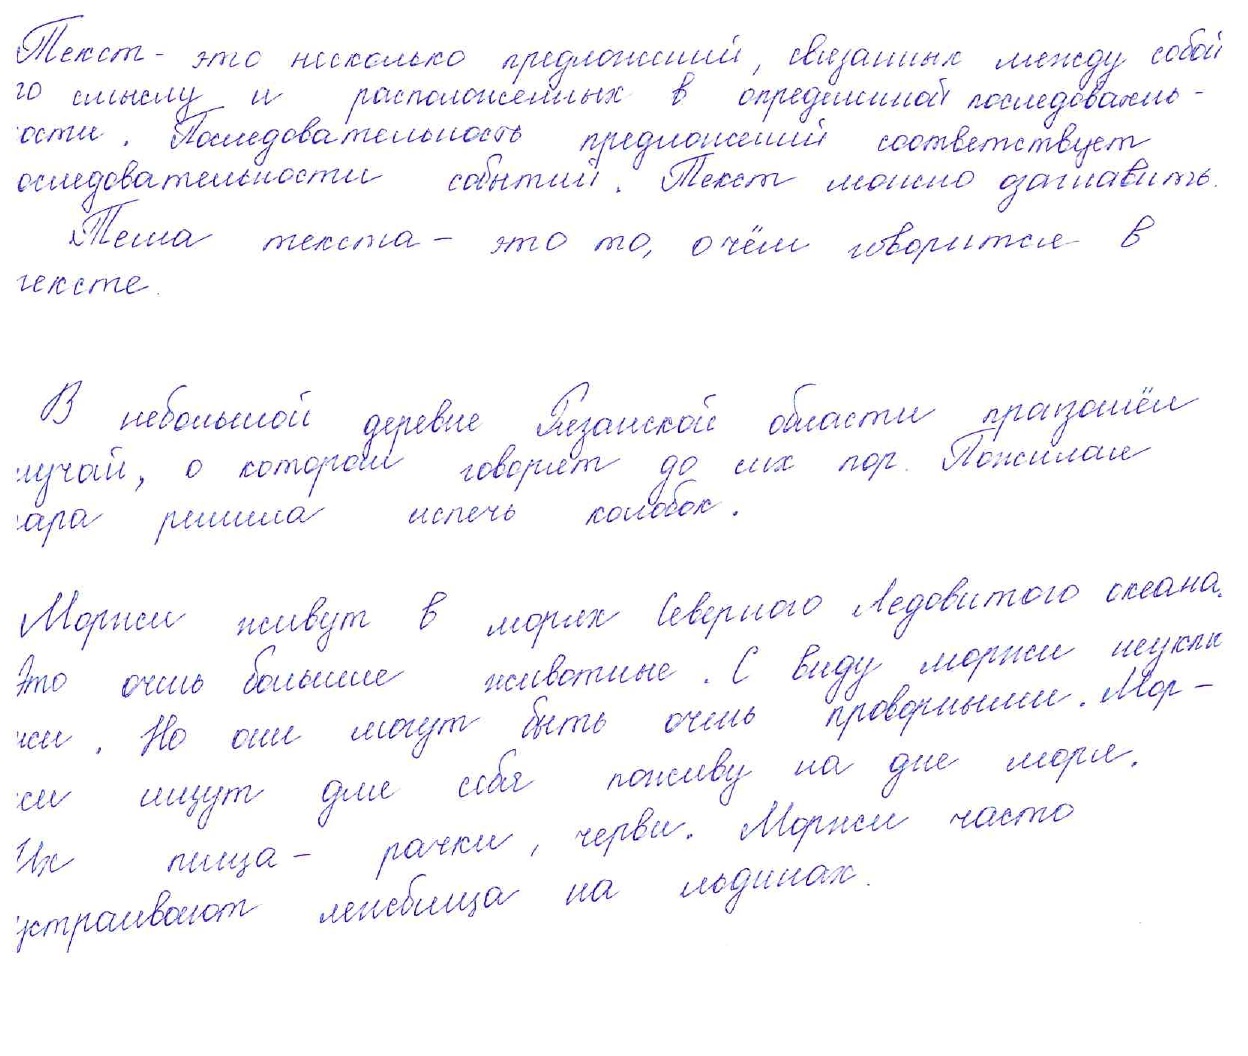 Текст - это несколько предложений, связанных между собой
по смыслу и расположенных в определенной последователь-
ости. Последовательность предложений соответствует
оследовательности событий. Текст можно озаглавить.
Тема текста - это то, о чём говорится в
тексте.
В небольшой деревне Рязанской области произошёл
лучай, о котором говорят до сих пор. Пожилая
пара решила испечь колобок.
Моржи живут в морях Северного Ледовитого океана.
Это очень большие животные. С виду моржи неуклю
жи. Но они могут быть очень проворными. Мор-
жи ищут для себя поживу на дне моря.
Их пища - рачки, черви. Моржи часто
устраивают лежбища на льдинах.